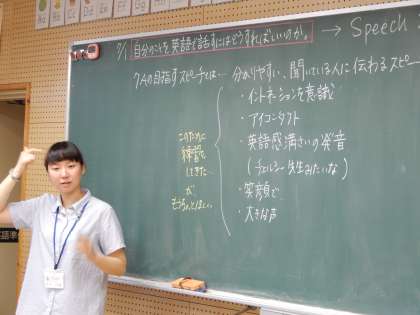 9/1 自分のことを英語で話すにはどうすればよいのか。 → Speech
7Aの目指すスピーチとは… 分かりやすい、聞いている人に伝わるスピー
・イントネーションを意識
・アイコンタクト
・英語感満さいの発音
(チェルシー先生みたいな)
・笑顔で
・大きな声
このために
練習を
してきた
が